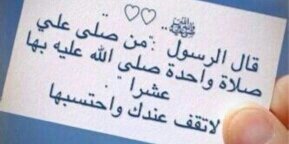 ﷺ
قال الرسول : من صلى علي
صلاة واحدة صلى الله عليه بها
عشرا
لاتقف عندك واحتسبها